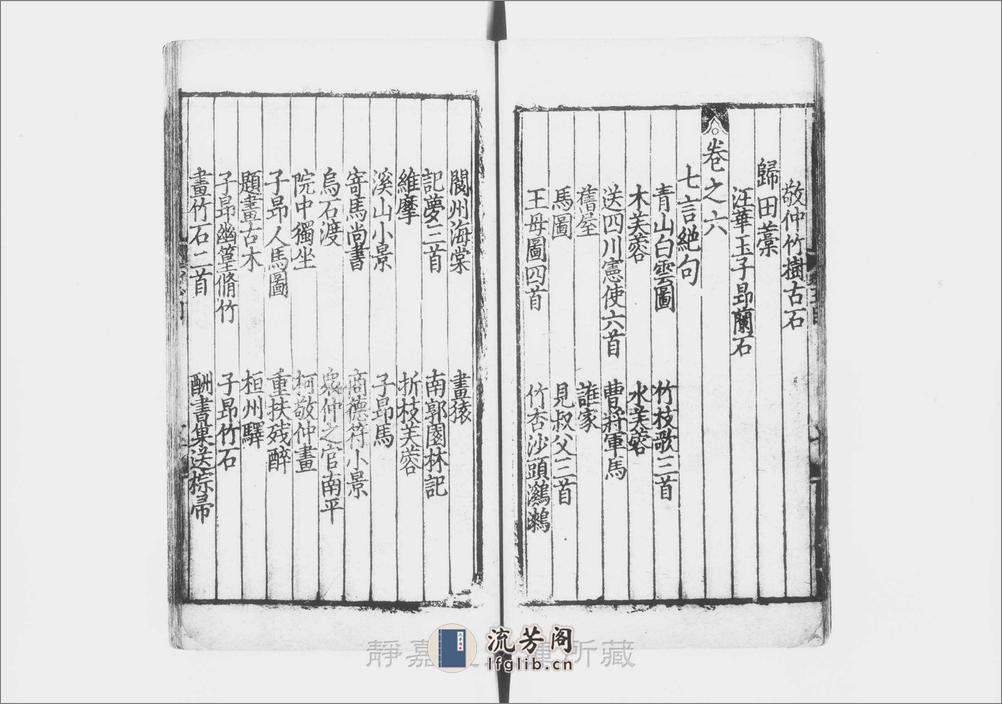 敬仲竹樹古石
歸田藁
汪華玉子昻蘭石
卷之六
七言絕句
青山白雲圖 竹枝歌三首
木芙蓉 水芙蓉
送四川憲使六首 曹將軍馬
舊屋 誰家
馬圖 見叔父三首
王母圖四首 竹杏沙頭鸂鶒
閬州海棠 畫猿
記夢三首 南郭園林記
維摩 折枝芙蓉
溪山小景 子昻馬
寄馬尚書 商德符小景
烏石渡 衆仲之官南平
院中獨坐 柯敬仲畫
子昻人馬圖 重扶殘醉
題畫古木 桓州驛
子昻幽篁脩竹 子昻竹石
畫竹石二首 酬書巢送椶帚
靜嘉 所藏
流芳阁
lfglib.cn